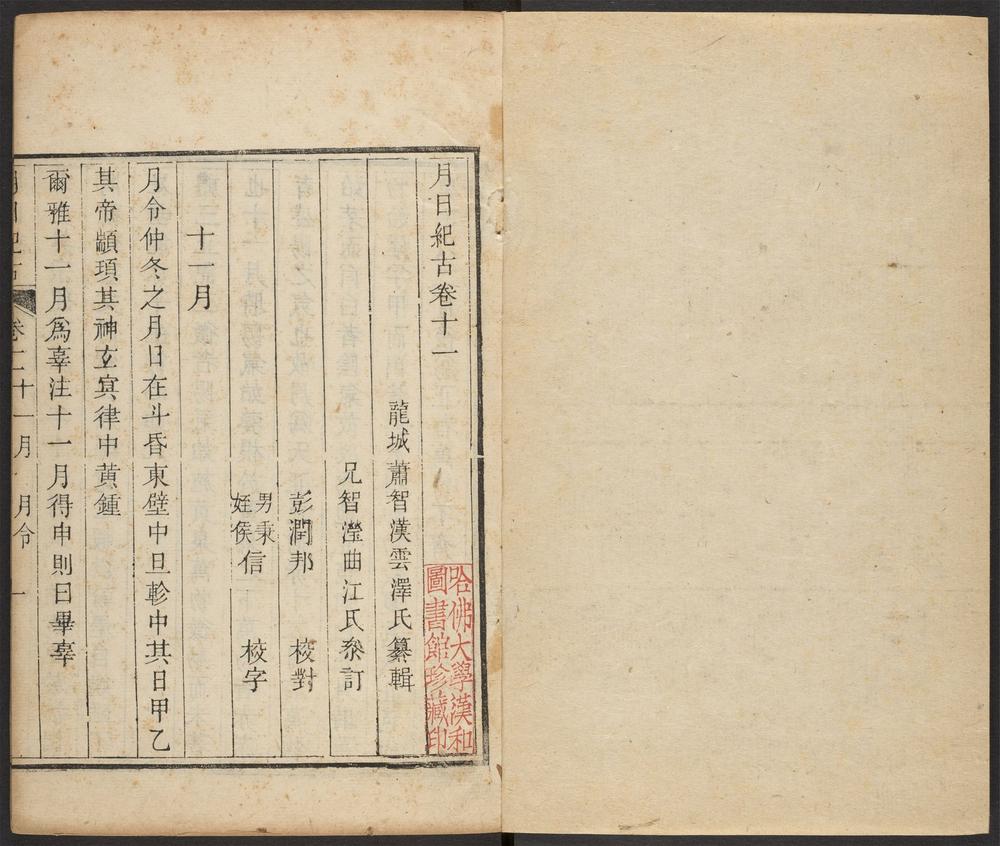 月日紀古卷十一
龍城蕭智漢雲澤氏纂輯
兄智瀅曲江氏叅訂
彭潤邦 校對
男秉
姪侯信 校字
十一月
月令仲冬之月日在斗昏東壁中旦軫中其日甲乙
其帝顓頊其神玄冥律中黃鍾
爾雅十一月爲辜注十一月得甲則曰畢辜
月日紀古 卷十一 十一月 月令 一
哈佛大學漢和
圖書館珍藏印